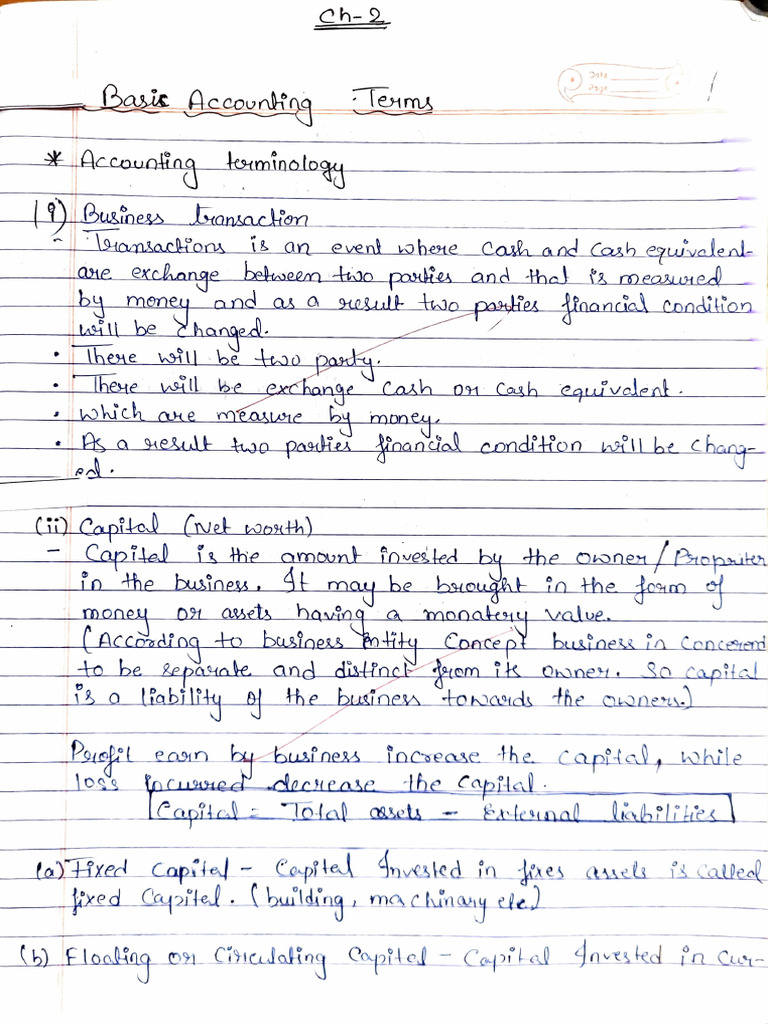 Ch-2
Date
Page
1
Basic Accounting Terms
* Accounting terminology
(i) Business transaction
- Transactions is an event where cash and cash equivalent
are exchange between two parties and that is measured
by money and as a result two parties financial condition
will be changed.
• There will be two party.
• There will be exchange cash or cash equivalent.
• which are measure by money.
• As a result two parties financial condition will be chang-
ed.
(ii) Capital (Net worth)
- Capital is the amount invested by the owner/Propriter
in the business. It may be brought in the form of
money or assets having a monatery value.
(According to business Entity Concept business in concerend
to be separate and distinct from its owner. So capital
is a liability of the business towards the owners.)
Profit earn by business increase the capital, while
loss incurred decrease the capital.
Capital = Total assets - External liabilities
(a) Fixed Capital - Capital Invested in fixes assets is called
fixed Capital. (building, machinary etc.)
(b) Floating or Circulating Capital - Capital Invested in Cur-